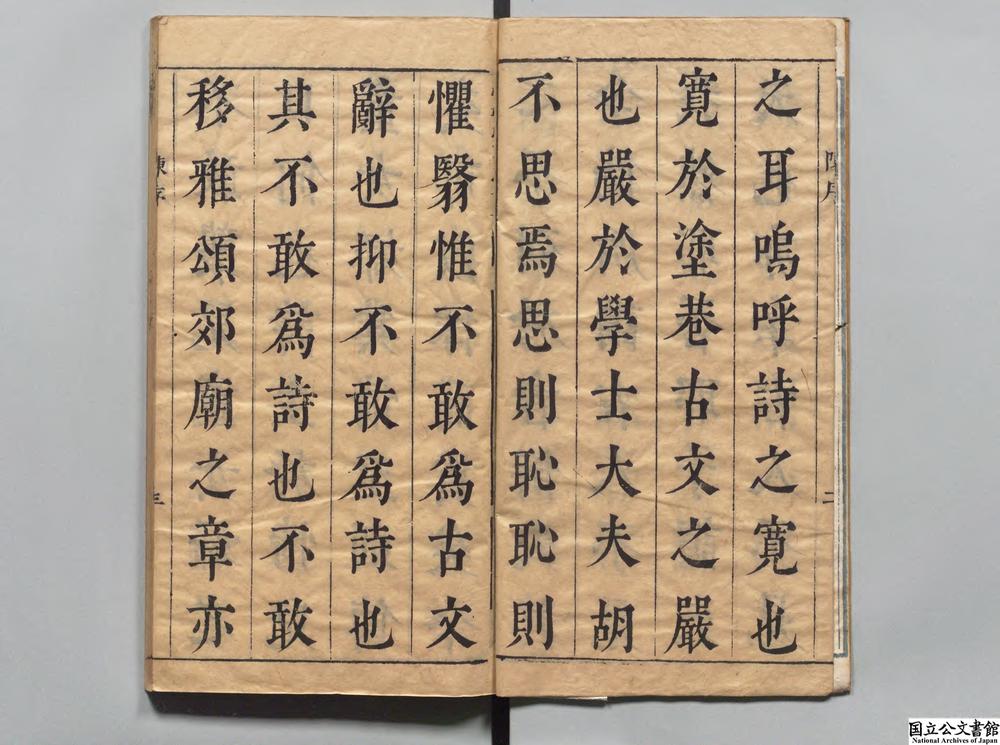 之耳嗚呼詩之寛也
寛於塗巷古文之嚴
也嚴於學士大夫胡
不思焉思則恥恥則
懼翳惟不敢爲古文
辭也抑不敢爲詩也
其不敢爲詩也不敢
移雅頌郊廟之章亦
陳序
三
二
国立公文書館
National Archives of Japan